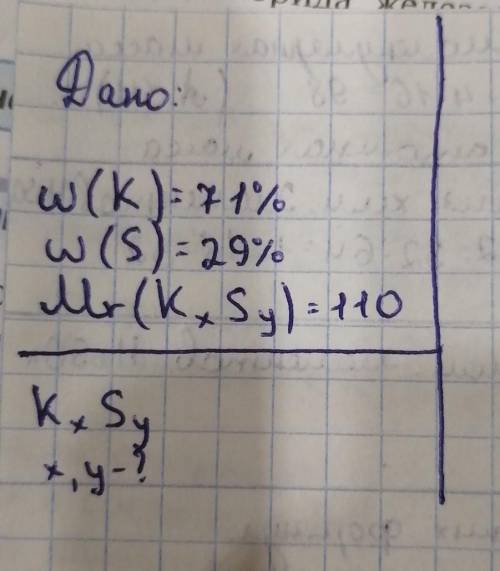 Дано:
w(K)=71%
w(S)=29%
Mr(KxSy)=110
KxSy
x,y-?